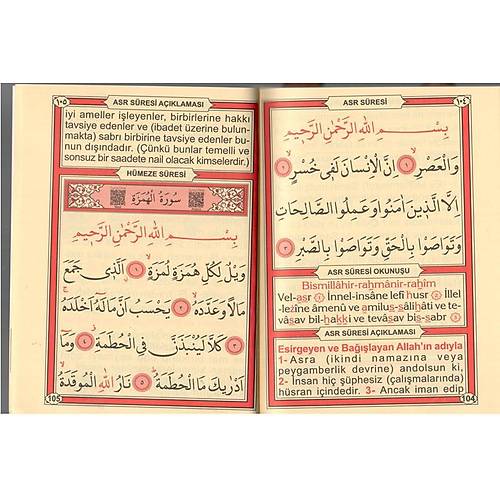 ١٠٤
ASR SÛRESİ
بِسْمِ اللهِ الرَّحْمٰنِ الرَّحِيمِ
وَالْعَصْرِ ﴿١﴾ اِنَّ الْاِنْسَانَ لَفٖى خُسْرٍ ﴿٢﴾
اِلَّا الَّذٖينَ اٰمَنُوا وَعَمِلُوا الصَّالِحَاتِ
وَتَوَاصَوْا بِالْحَقِّ وَتَوَاصَوْا بِالصَّبْرِ ﴿٣﴾
ASR SÛRESİ OKUNUŞU
Bismillâhir-rahmânir-rahîm
Vel-asr ① İnnel-insâne lefî husr ② İllel
-lezîne âmenû ve amilus-sâlihâti ve te-
vâsav bil-hakki ve tevâsav bis-sabr ③
ASR SÛRESİ AÇIKLAMASI
Esirgeyen ve Bağışlayan Allah'ın adıyla
1- Asra (ikindi namazına veya
peygamberlik devrine) andolsun ki,
2- İnsan hiç şüphesiz (çalışmalarında)
hüsran içindedir. 3- Ancak iman edip
104
١٠٥
ASR SÛRESİ AÇIKLAMASI
iyi ameller işleyenler, birbirlerine hakkı
tavsiye edenler ve (ibadet üzerine bulun-
makta) sabrı birbirine tavsiye edenler bu-
nun dışındadır. (Çünkü bunlar temelli ve
sonsuz bir saadete nail olacak kimselerdir.)
HÜMEZE SÛRESİ
سُورَةُ الْهُمَزَةِ
بِسْمِ اللهِ الرَّحْمٰنِ الرَّحِيمِ
وَيْلٌ لِكُلِّ هُمَزَةٍ لُمَزَةٍ ﴿١﴾ اَلَّذٖى جَمَعَ
مَالًا وَعَدَّدَهُ ﴿٢﴾ يَحْسَبُ اَنَّ مَالَهُٓ اَخْلَدَهُ
﴿٣﴾ كَلَّا لَيُنْبَذَنَّ فِى الْحُطَمَةِ ﴿٤﴾ وَمَٓا
اَدْرٰيكَ مَا الْحُطَمَةُ ﴿٥﴾ نَارُ اللهِ الْمُوقَدَةُ
105